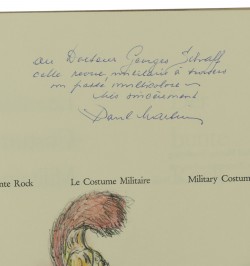 Au Docteur Georges
cette revue militaire à travers
un passé multicolore
très sincèrement
Paul
nte Rock Le Costume Militaire Military Costum